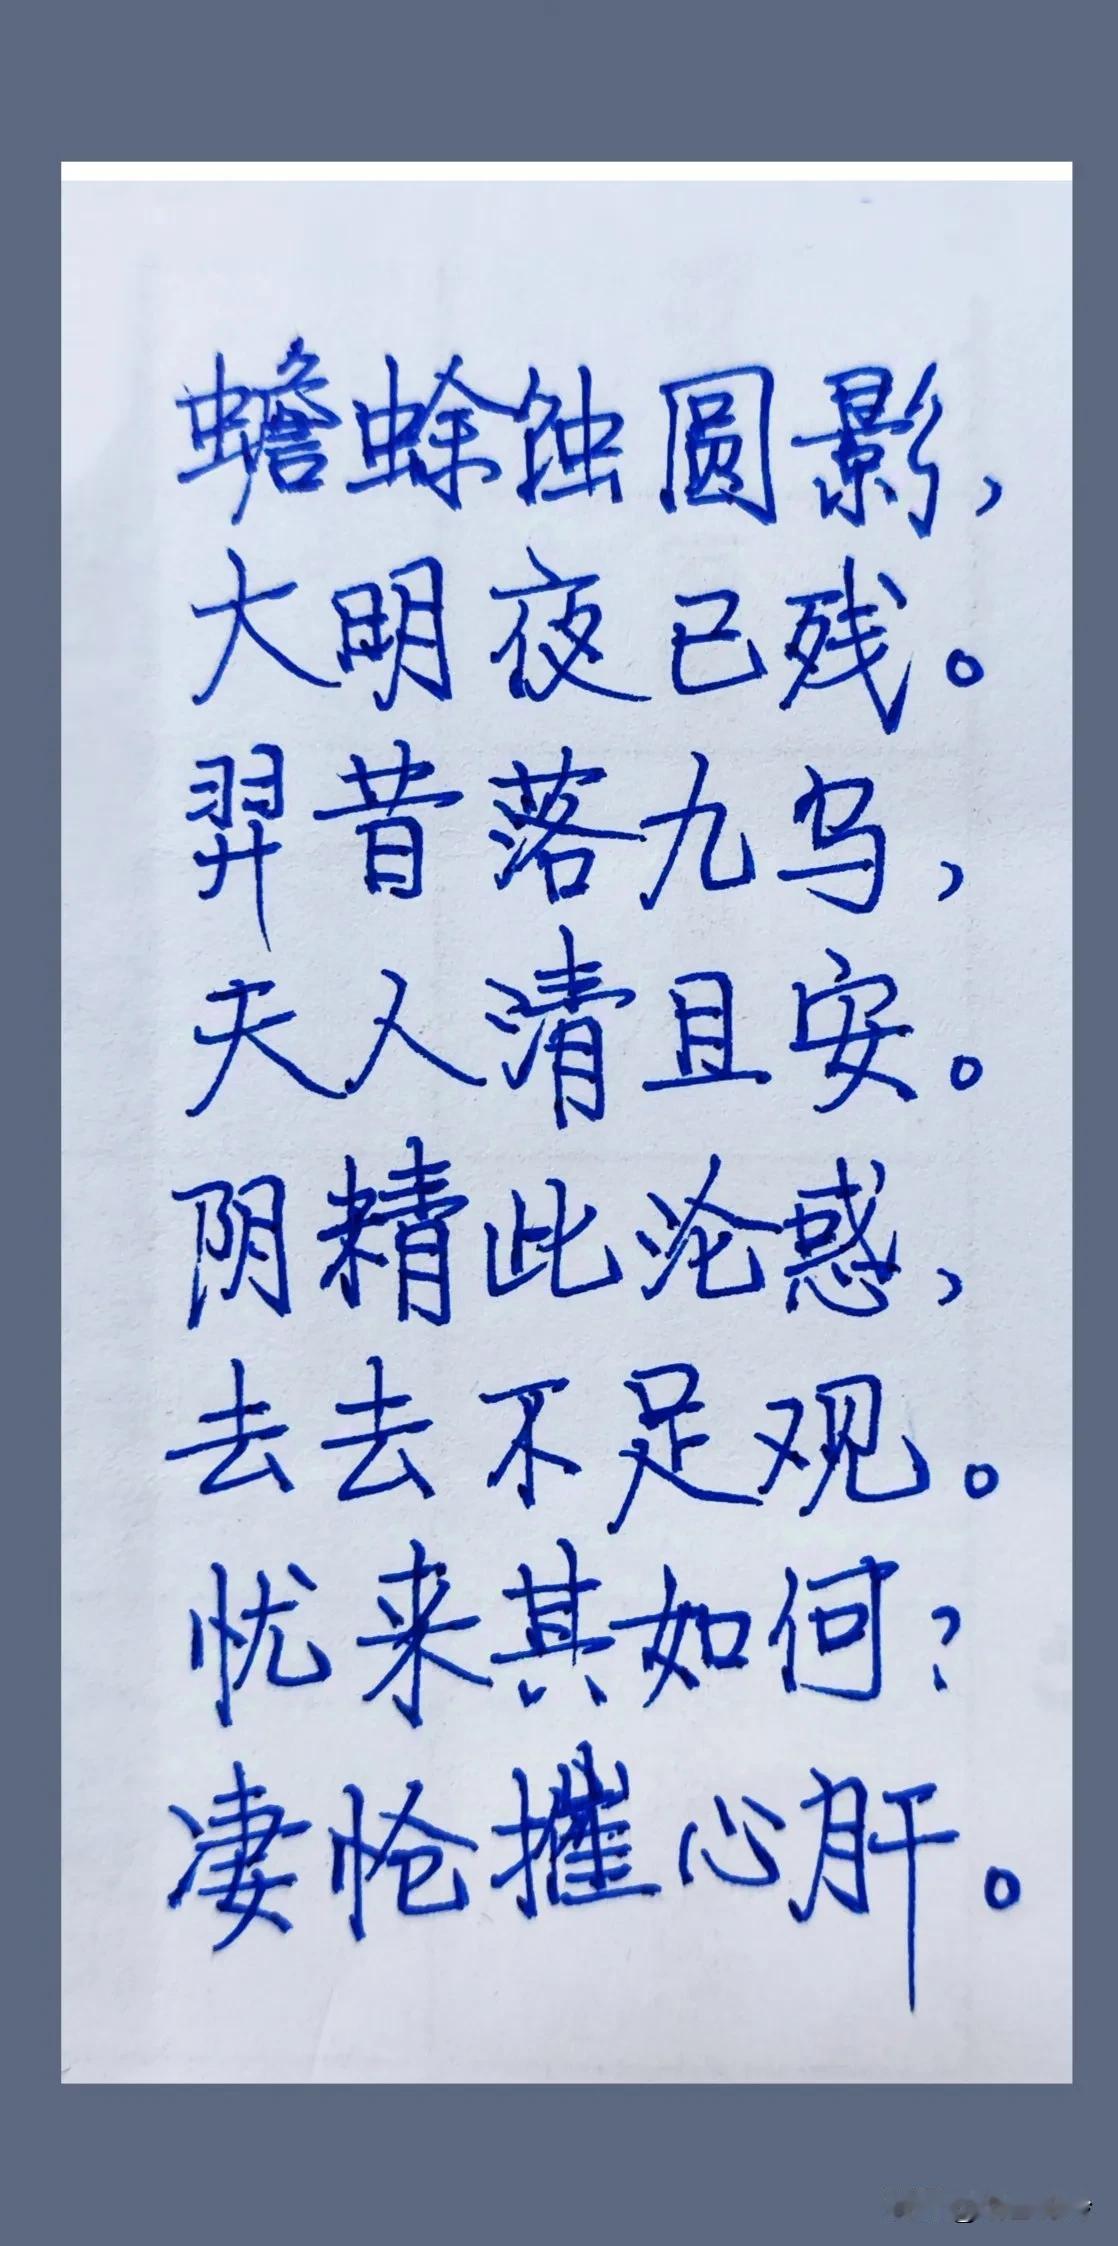 蟾蜍蚀圆影，
大明夜已残。
羿昔落九乌，
天人清且安。
阴精此沦惑，
去去不足观。
忧来其如何？
凄怆摧心肝。